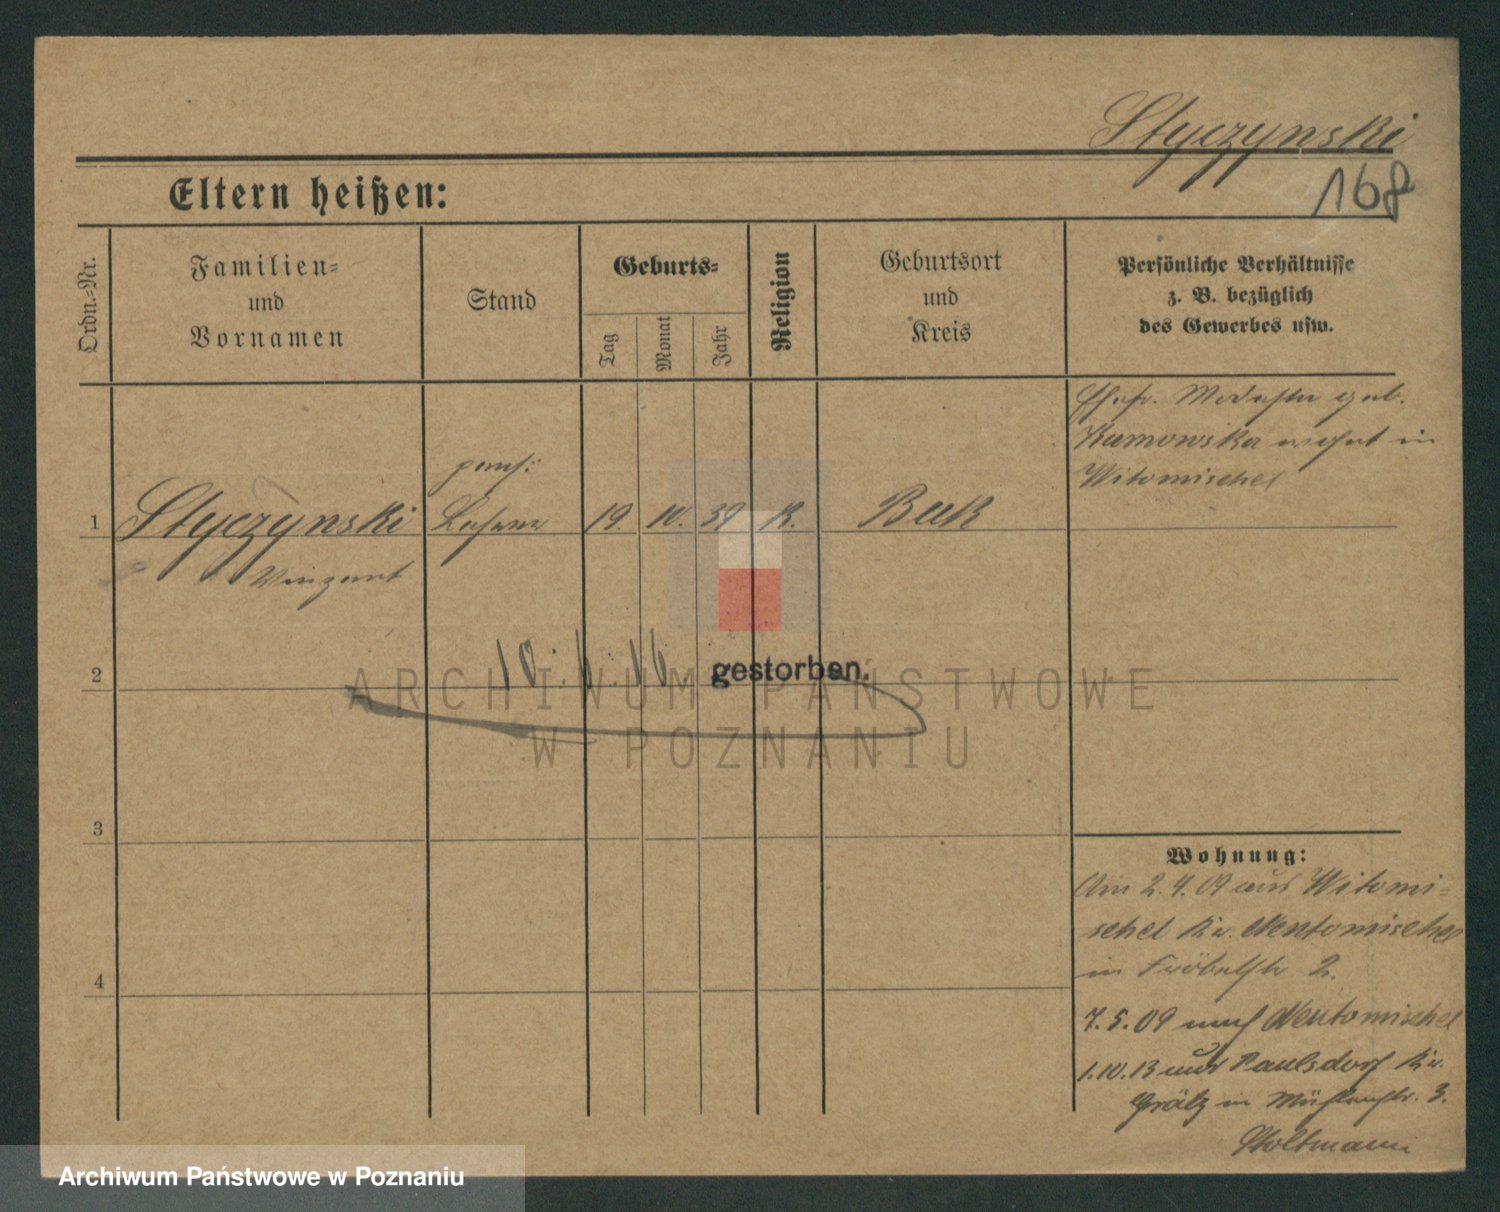 Styczynski
168
Eltern heißen:
Ordn.-Nr.
Familien-
und
Vornamen
Stand
Geburts-
Tag
Monat
Jahr
Religion
Geburtsort
und
Kreis
Persönliche Verhältnisse
z. B. bezüglich
des Gewerbes usw.
Ehefr. geb.
wohnt in
Witomischel
pens.
1 Styczynski Lehrer 19. 10. 39 K. Buk
Vinzent
2
10. 1. 16 gestorben.
3
4
Wohnung:
Am 2.4.09 aus Witomi-
schel Kr. Neutomischel
in Fröbelstr 2.
7.5.09 nach Neutomischel
1.10.13 aus Paulsdorf Kr.
Grätz in Mühlenstr. 3.
Stoltmann
ARCHIWUM PAŃSTWOWE
W POZNANIU
Archiwum Państwowe w Poznaniu